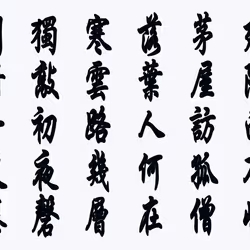 茅屋訪孤僧
落葉人何在
寒雲路幾層
獨敲初夜磬